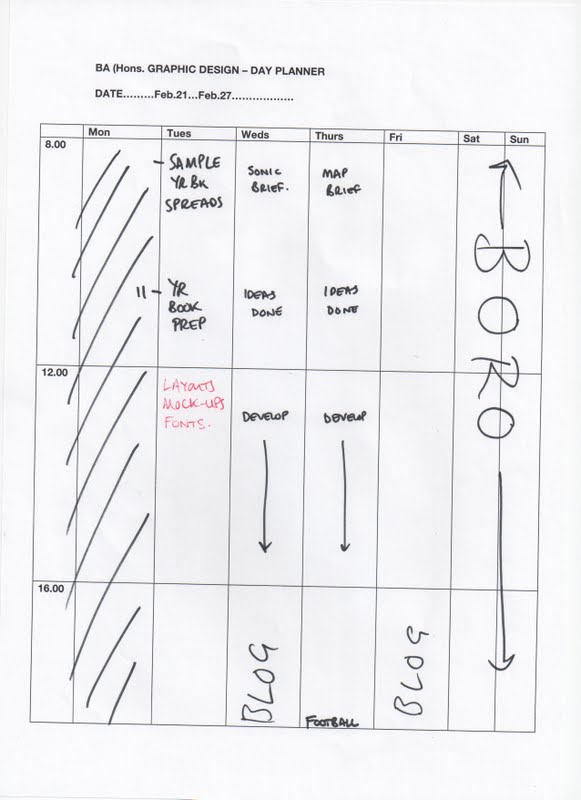 BA (Hons. GRAPHIC DESIGN – DAY PLANNER
DATE.........Feb.21...Feb.27..................
Mon Tues Weds Thurs Fri Sat Sun
8.00
– SAMPLE
YR BK
SPREADS
SONIC
BRIEF.
MAP
BRIEF
11 – YR
BOOK
PREP
IDEAS
DONE
IDEAS
DONE
BORO
12.00
LAYOUTS
MOCK-UPS
FONTS.
DEVELOP
DEVELOP
16.00
BLOG
FOOTBALL
BLOG